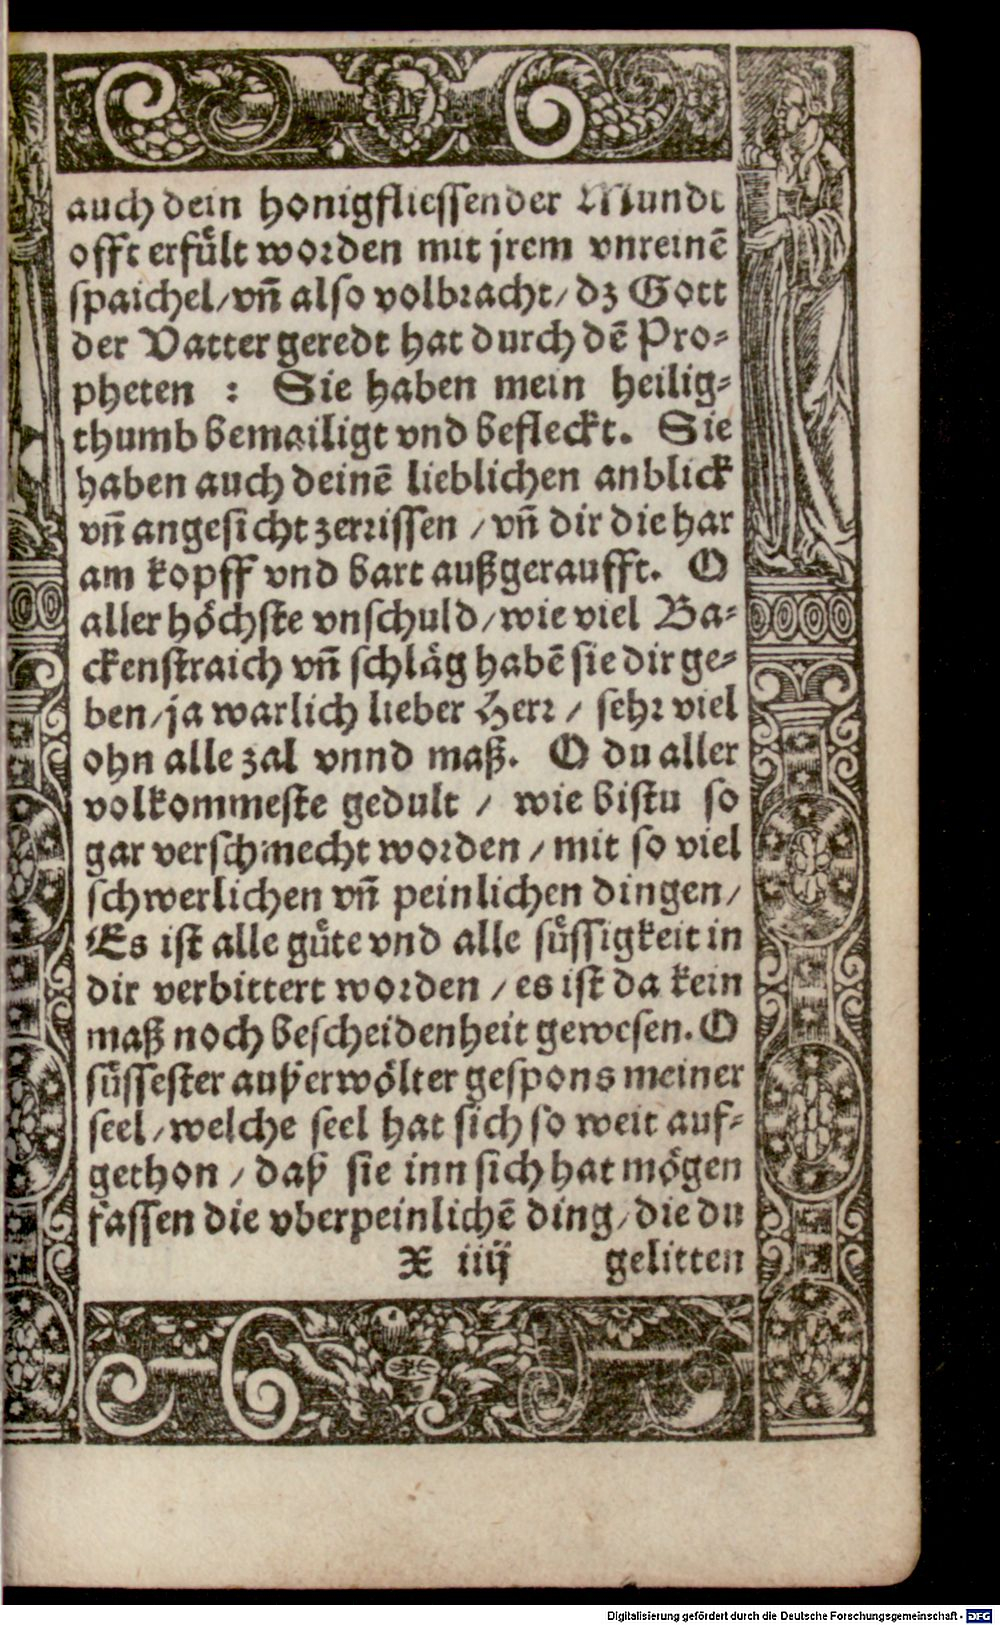 auch dein honigfliessender Mundt
offt erfült worden mit jrem vnreinē
spaichel/vn̄ also volbracht/dz Gott
der Vatter geredt hat durch dē Pro-
pheten : Sie haben mein heilig-
thumb bemailigt vnd befleckt. Sie
haben auch deinē lieblichen anblick
vn̄ angesicht zerrissen /vn̄ dir die har
am kopff vnd bart außgeraufft. O
aller höchste vnschuld/wie viel Ba-
ckenstraich vn̄ schläg habē sie dir ge-
ben/ja warlich lieber Herr / sehr viel
ohn alle zal vnnd maß. O du aller
volkommeste gedult / wie bistu so
gar verschmecht worden /mit so viel
schwerlichen vn̄ peinlichen dingen/
Es ist alle güte vnd alle süssigkeit in
dir verbittert worden /es ist da kein
maß noch bescheidenheit gewesen. O
süssester außerwölter gespons meiner
seel/welche seel hat sich so weit auf-
gethon / daß sie inn sich hat mögen
fassen die vberpeinlichē ding/die du
X iiij gelitten
Digitalisierung gefördert durch die Deutsche Forschungsgemeinschaft - DFG